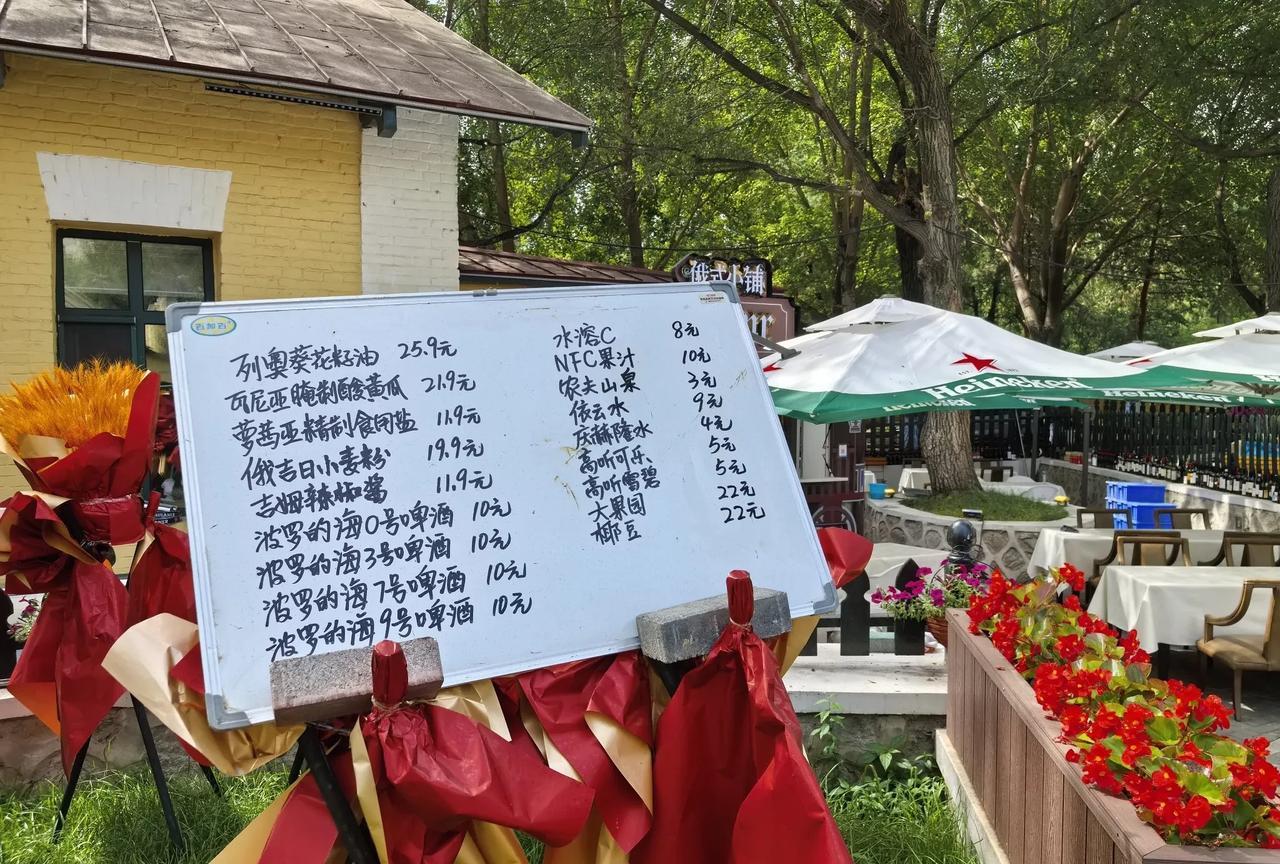 百加百
列奥葵花籽油 25.9元
瓦尼亚腌制酸黄瓜 21.9元
萝茜亚精制食用盐 11.9元
俄吉日小麦粉 19.9元
吉姆辣椒酱 11.9元
波罗的海0号啤酒 10元
波罗的海3号啤酒 10元
波罗的海7号啤酒 10元
波罗的海9号啤酒 10元
水溶C 8元
NFC果汁 10元
农夫山泉 3元
依云水 9元
庆赫隆水 4元
高听可乐 5元
高听雪碧 5元
大果园 22元
椰豆 22元
俄式小铺
Heineken
Heineken
Heineken